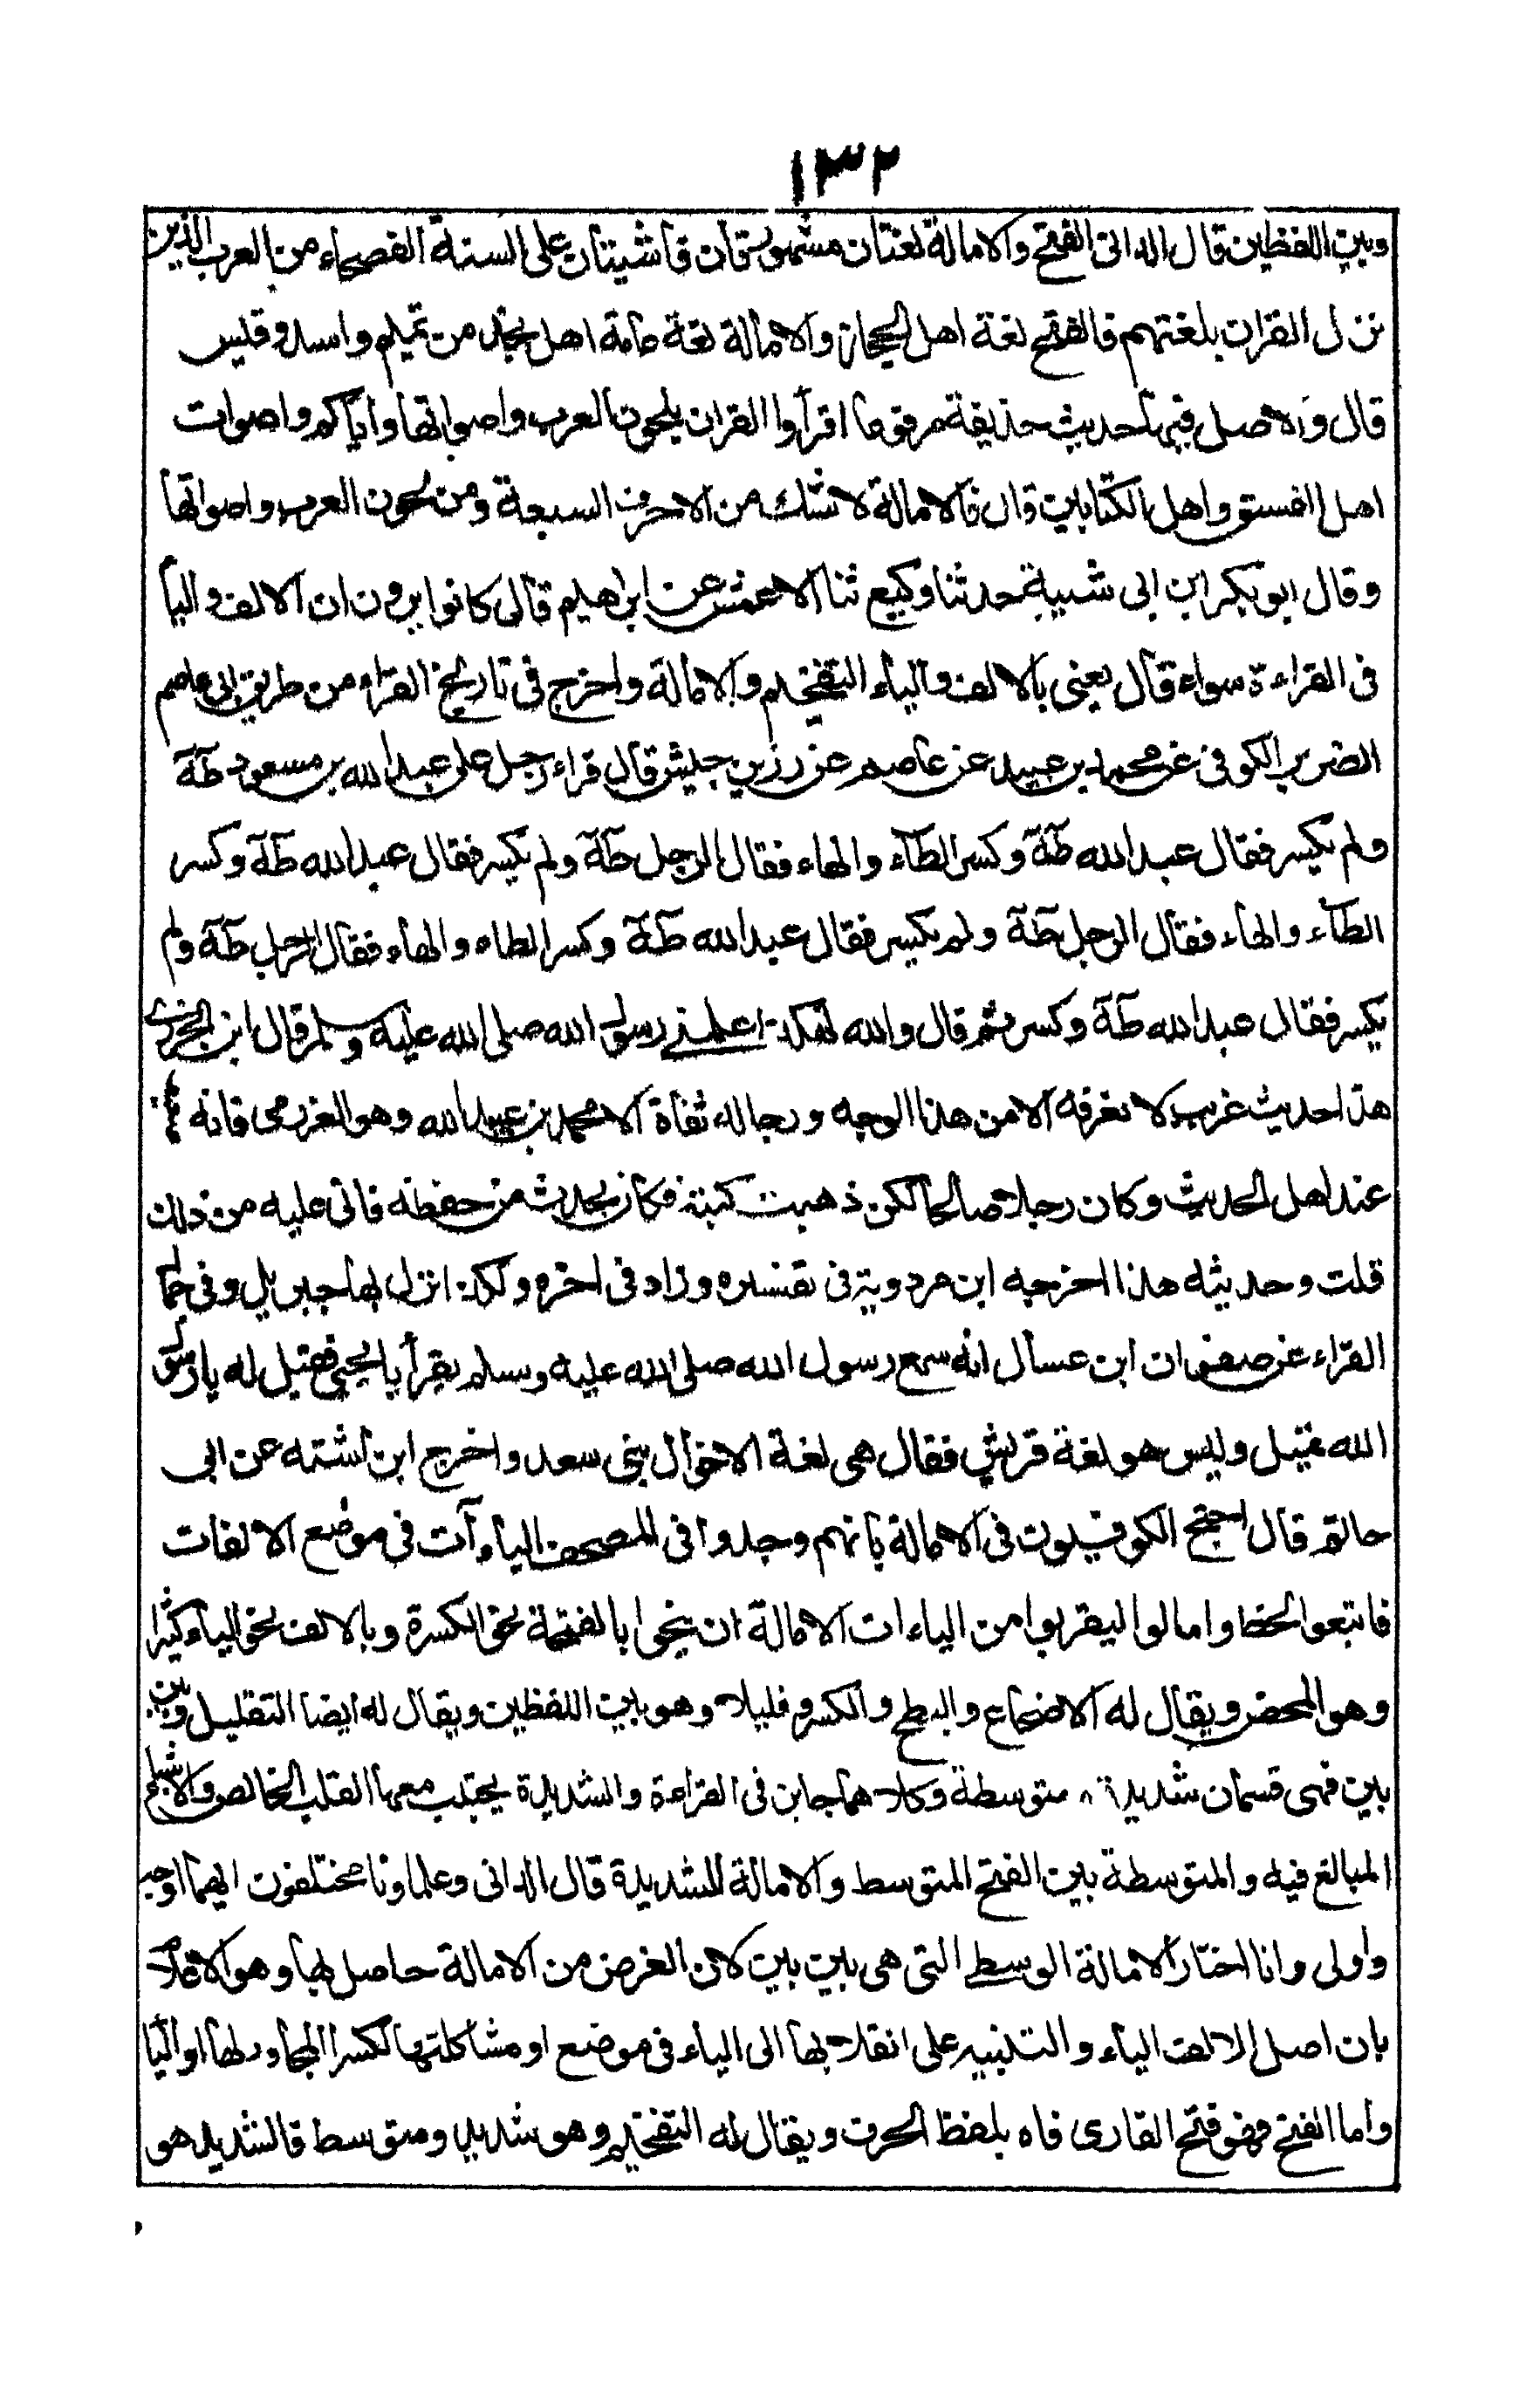 ١٣٢
وبين اللفظين قال الدانى الفتح والامالة لغتان مشهورتان فاشيتان على السنة الفصحاء من العرب الذين
نزل القران بلغتهم فالفتح لغة اهل الحجاز والامالة لغة عامة اهل نجد من تميم واسد وقيس
قال والاصل فيها حديث حذيفة مرفوعا اقرأوا القران بلحون العرب واصواتها واياكم واصوات
اهل الفسق واهل الكتابين قال فالامالة لا شك من الاحرف السبعة ومن لحون العرب واصواتها
وقال ابو بكر ابن ابى شيبة حدثنا وكيع ثنا الاعمش عن ابرهيم قال كانوا يرون ان الالف والياء
فى القراءة سواء قال يعنى بالالف والياء التفخيم والامالة واخرج فى تاريخ القراء من طريق ابى عاصم
الضرير الكوفى عن محمد بن عبيد عن عاصم عن زر بن حبيش قال قراء رجل على عبد الله بن مسعود طه
ولم يكسر فقال عبد الله طه وكسر الطاء والهاء فقال الرجل طه ولم يكسر فقال عبد الله طه وكسر
الطاء والهاء فقال الرجل طه ولم يكسر فقال عبد الله طه وكسر الطاء والهاء فقال الرجل طه ولم
يكسر فقال عبد الله طه وكسر ثم قال والله لهكذا علمنى رسول الله صلى الله عليه وسلم قال ابن الجزرى
هذا حديث غريب لا نعرفه الا من هذا الوجه ورجاله ثقاة الا محمد بن عبيد الله وهو العزرمى فانه
عند اهل الحديث وكان رجلا صالحا لكن ذهبت كتبه فكان يحدث من حفظه فاتى عليه من ذلك
قلت وحديثه هذا اخرجه ابن مردوية فى تفسيره وزاد فى اخره وكذا انزل بها جبريل وفى جمال
القراء عن صفوان ابن عسال انه سمع رسول الله صلى الله عليه وسلم يقرأ يا يحيى فقيل له يا رسول
الله تميل وليس هو لغة قريش فقال هى لغة الاخوال بنى سعد واخرج ابن اشته عن ابى
حاتم قال احتج الكوفيون فى الامالة بانهم وجدوا فى المصحف الياءآت فى موضع الالفات
فاتبعوا الخط وامالوا ليقربوا من الياءات الامالة ان ينحوا بالفتحة نحو الكسرة وبالالف نحو الياء كثيرا
وهو المحض ويقال له الاضجاع والبطح والكسر وقليلا وهو بين اللفظين ويقال له ايضا التقليل وبين
بين فهى قسمان شديدة متوسطة وكلاهما جايز فى القراءة والشديدة يجتنب معها القلب الخالص والاشباع
المبالغ فيه والمتوسطة بين الفتح المتوسط والامالة الشديدة قال الدانى وعلماونا مختلفون ايهما اوجه
واولى وانا اختار الامالة الوسطى التى هى بين بين لان الغرض من الامالة حاصل بها وهو الاعلام
بان اصل الالف الياء والتنبيه على انقلابها الى الياء فى موضع او مشاكلتها للكسر المجاور لها او الياء
واما الفتح فهو فتح القارى فاه بلفظ الحرف ويقال له التفخيم وهو شديد ومتوسط فالشديد هو